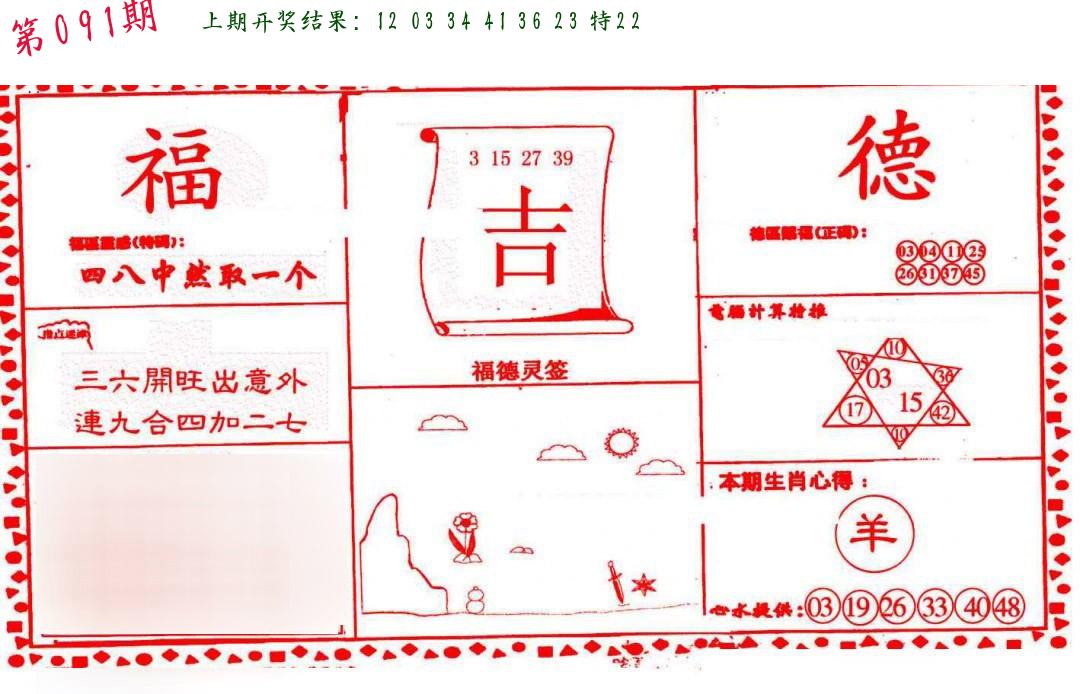 第091期
上期开奖结果: 12 03 34 41 36 23 特22
福
福區靈感(特碼):
四八中然取一个
三六開旺出意外
連九合四加二七
3 15 27 39
吉
福德灵签
德
德區賜福(正碼):
03 04 11 25
26 31 37 45
電腦計算特推
10
05 03 36
17 15 42
10
本期生肖心得:
羊
心水提供: 03 19 26 33 40 48